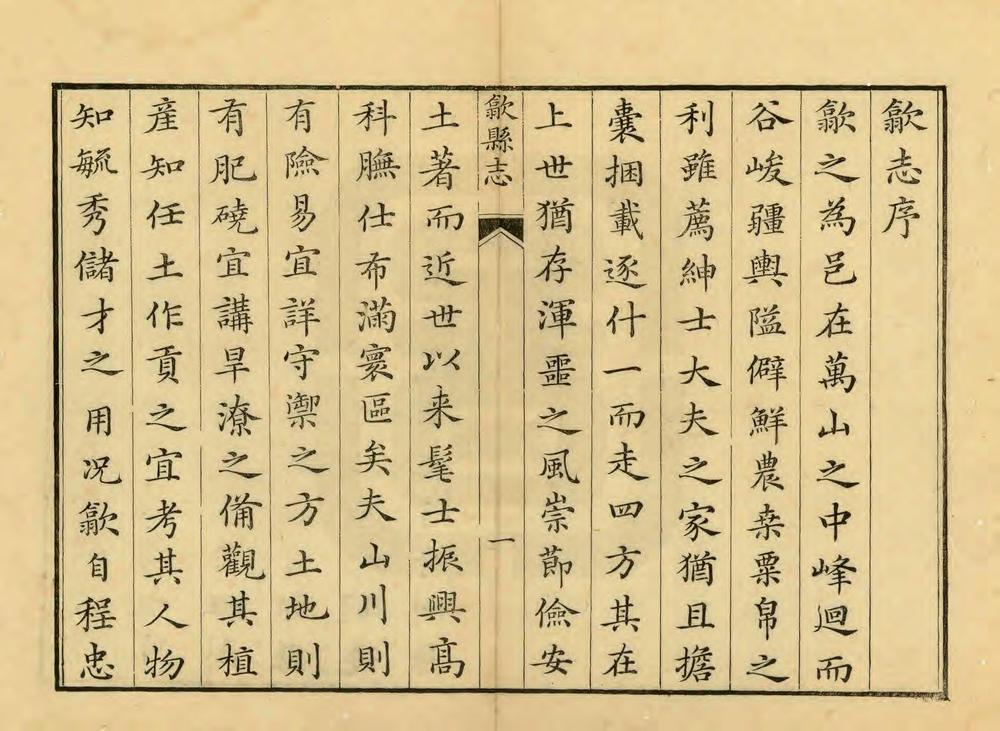 歙志序
歙之為邑在萬山之中峰迴而
谷峻疆輿隘僻鮮農桒粟帛之
利雖薦紳士大夫之家猶且擔
囊捆載逐什一而走四方其在
上世猶存渾噩之風崇節儉安
歙縣志
一
土著而近世以来髦士振興髙
科膴仕布滿寰區矣夫山川則
有險易宜詳守禦之方土地則
有肥磽宜講旱潦之俻觀其植
産知任土作貢之宜考其人物
知毓秀儲才之用况歙自程忠